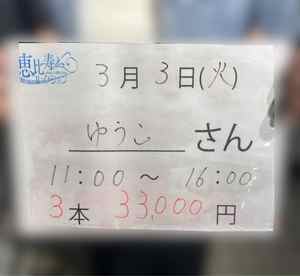 恵比寿
3月3日(火)
ゆうこさん
11:00 ～ 16:00
3本 33,000円